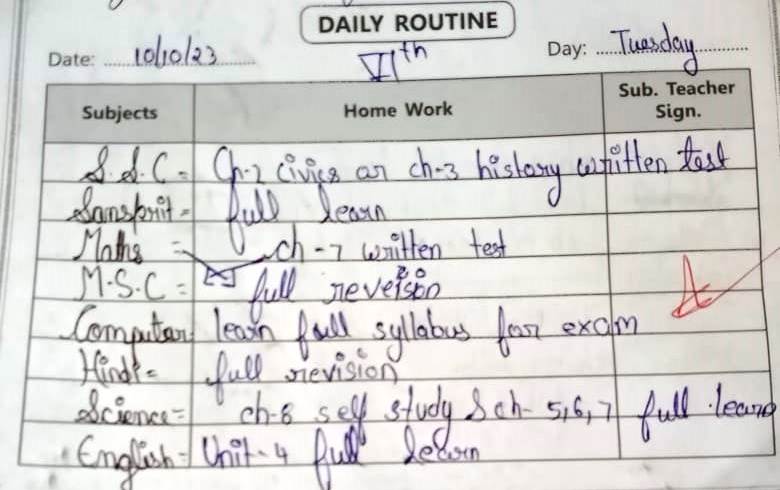 DAILY ROUTINE
Date: 10/10/23 VIth Day: Tuesday
Subjects Home Work Sub. Teacher Sign.
S.S.C = Ch-2 civics ar ch-3 history written test
Sanskrit = full learn
Maths = ch-7 written test
M.S.C = full reveision
Computar learn full syllabus for exam
Hindi = full revision
Science = ch-8 self study & ch- 5,6,7 full learn
English = Unit-4 full learn